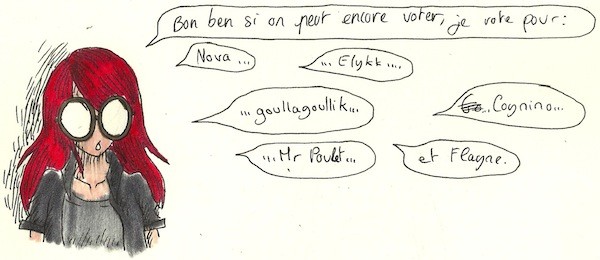 Bon ben si on peut encore voter, je vote pour:
Nova...
... Elykk ....
... goullagoullik...
...Cognino...
...Mr Poulet...
et Flayne.